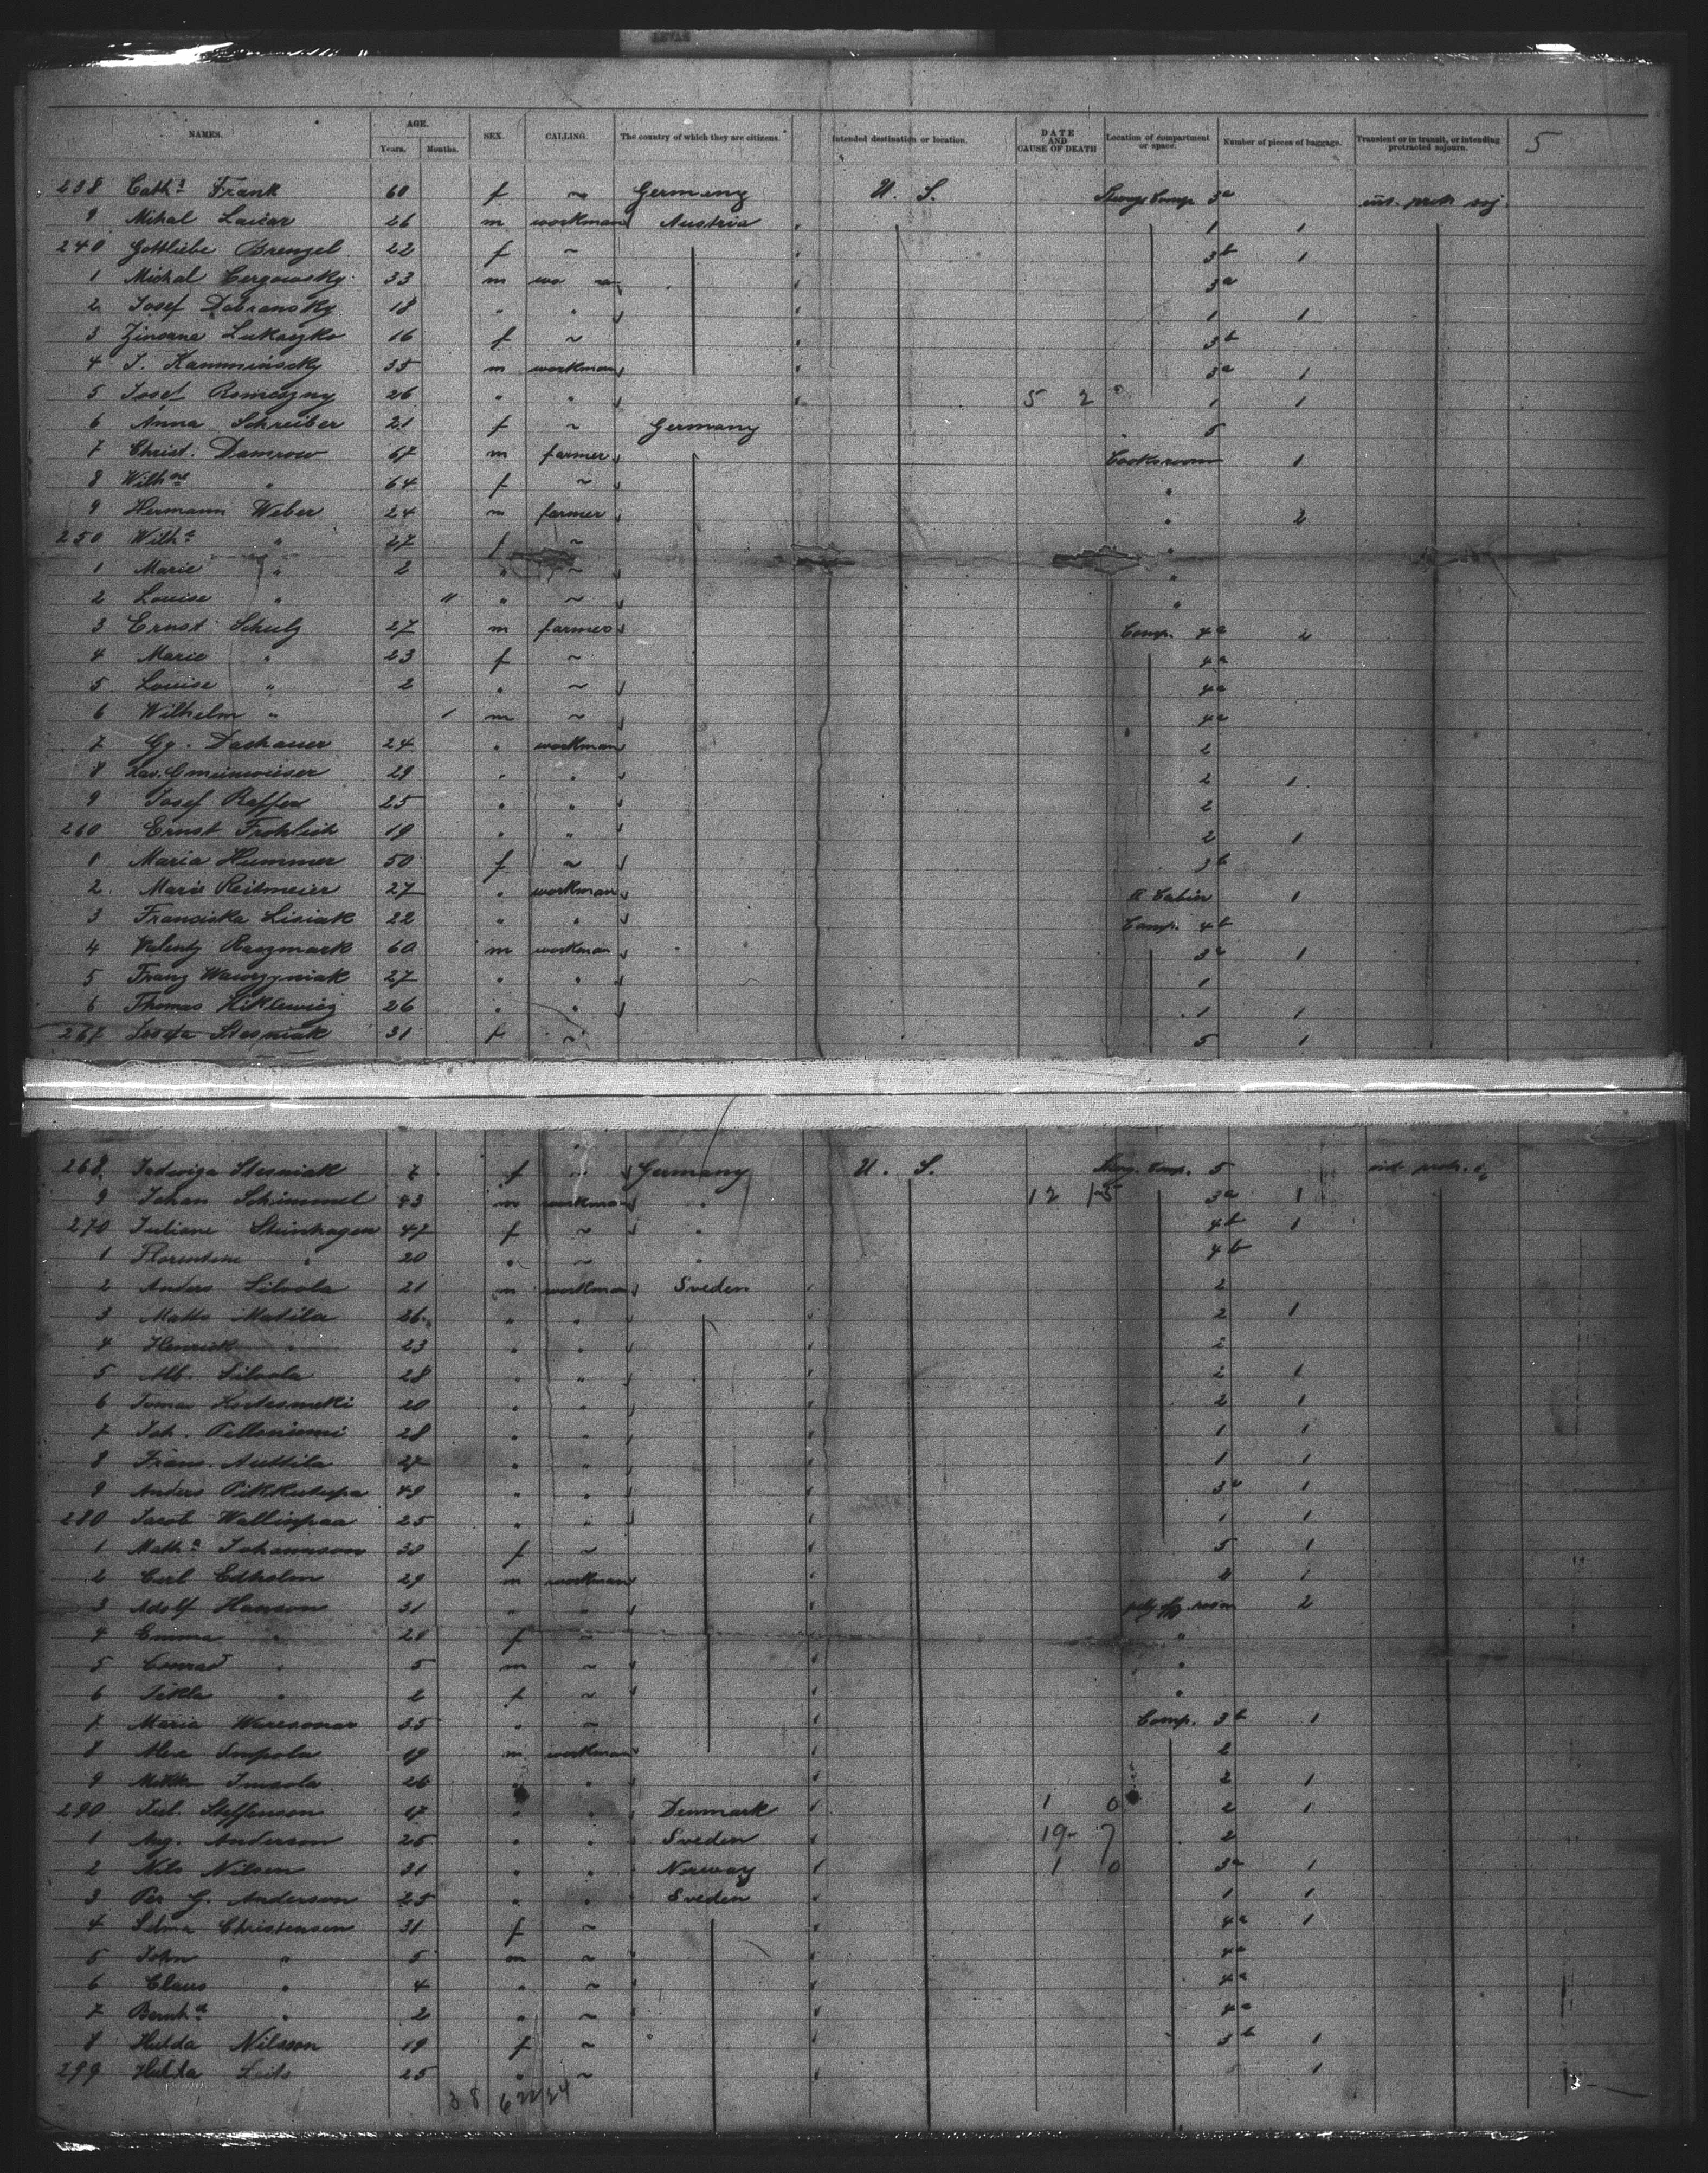 NAMES. AGE. Years. Months. SEX. CALLING. The country of which they are citizens. Intended destination or location. DATE AND CAUSE OF DEATH Location of compartment or space. Number of pieces of baggage. Transient or in transit, or intending protracted sojourn. 5
238 Cath.a Frank 60 f ~ Germany U. S. Comp 3a
9 Mihal 26 m workman Austria 1 1
240 Gottliebe Brenzel 22 f ~ 3b 1
1 Michal 33 m 3a
2 Josef Dobransky 18 " " 1 1
3 Lukaszko 16 f ~ 3b
4 J. 35 m workman 3a 1
5 Josef 26 " " 5 2 1 1
6 Anna Schreiber 21 f ~ Germany 5
7 Christ. Damrow 67 m farmer Cooksroom 1
8 Wilh.ne " 64 f ~ "
9 Hermann Weber 24 m farmer " 2
250 Wilh.e " 27 f ~ "
1 Marie " 2 " ~ "
2 Louise " 11 " ~ "
3 Ernst Schulz 27 m farmer Comp. 4a 2
4 Marie " 23 f ~ 4a
5 Louise " 2 " ~ 4a
6 Wilhelm " 1 m ~ 4a
7 Gg. Dachauer 24 " workman 2
8 Xav. Gmeinwieser 29 " " 2 1
9 Josef 25 " " 2
260 Ernst Frohlich 19 " " 2 1
1 Maria Hummer 50 f ~ 3b
2 Marie Reitmeier 27 " workman II Cabin 1
3 Franciska Lisiak 22 " " Comp. 4b
4 Valenty 60 m workman 3a 1
5 Franz Wawrzyniak 27 " " 1
6 Thomas 26 " " 1 1
267 31 f ~ 5 1
268 Jadwiga 7 f " Germany U. S. Comp. 5
9 Johan Schimmel 43 m workman " 12 3a 1
270 Juliane Steinhagen 47 f ~ " 4b 1
1 Florentine " 20 " ~ " 4b
2 Anders 21 m workman Sveden 2
3 Matts Matila 26 " " 2 1
4 Henrick " 23 " " 2
5 Alb. 28 " " 2 1
6 20 " " 2 1
7 Joh. 28 " " 1 1
8 Frans. 27 " " 1 1
9 Anders 49 " " 3a 1
280 Jacob 25 " " 1 1
1 Math.a Johannson f ~ 5 1
2 Carl Edholm 29 m workman 2 1
3 Adolf Hanson 31 " " room 2
4 Emma " f ~ "
5 Conrad " 5 m ~ "
6 Tekla " 2 f ~ "
7 Maria 35 " ~ Comp. 3b 1
8 Alex 19 m workman 2
9 26 " " 2 1
290 Jul. Steffenson 17 " " Denmark 1 0 2 1
1 Aug. Anderson 25 " " Sveden 19- 7 2
2 Nils Nilsen 31 " " Norway 1 0 3a 1
3 Per G. Anderson 25 " " Sveden 1 1
4 Selma Christensen 31 f ~ 4a 1
5 John " 5 m ~ 4a
6 Claus " 4 " ~ 4a
7 Bernh.d " 2 " ~ 4a
8 Hulda Nilsson 19 f ~ 3b 1
299 Hulda 25 " ~ 1